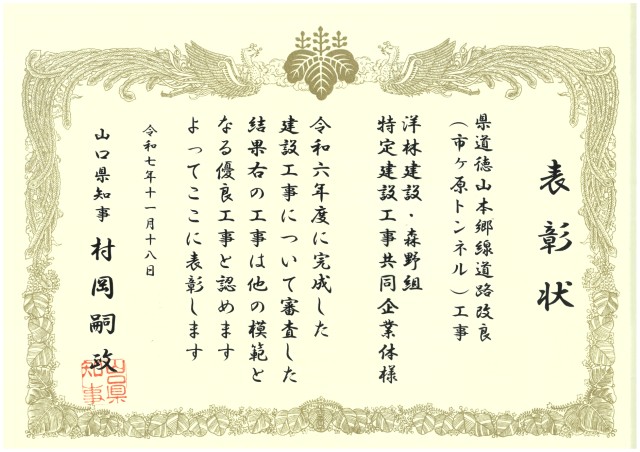 表彰状
県道徳山本郷線道路改良
（市ヶ原トンネル）工事
洋林建設・森野組
特定建設工事共同企業体様
令和六年度に完成した
建設工事について審査した
結果右の工事は他の模範と
なる優良工事と認めます
よってここに表彰します
令和七年十一月十八日
山口県知事 村岡嗣政
山口県
知事